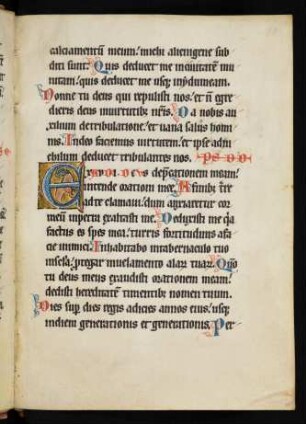 calciamentum meum. michi alienigene sub
diti sunt. Quis deducet me in ciuitatem mu
nitam. quis deducet me usq; in ydumeam.
Nonne tu deus qui repulisti nos. et n̄ egre
dieris deus in uirtutib; nr̄is. Da nobis au
xilium de tribulatione. et uana salus homi
nis. In deo faciemus uirtutem. et ipse ad ni
chilum deducet tribulantes nos.
Exaudi deus deprecationem meam.
intende orationi mee. A finib; t̄re
ad te clamaui. dum anxiaretur cor
meū in petra exaltasti me. Deduxisti me q̄a
factus es spes mea. turris fortitudinis a fa
cie inimici. Inhabitabo in tabernaculo tuo
in sc̄la. protegar in uelamento alarum tuarum. Qm̄
tu deus meus exaudisti orationem meam.
dedisti hereditatē timentib; nomen tuum.
Dies sup̄ dies regis adicies annos eius. usq;
in diem generationis et generationis. Per